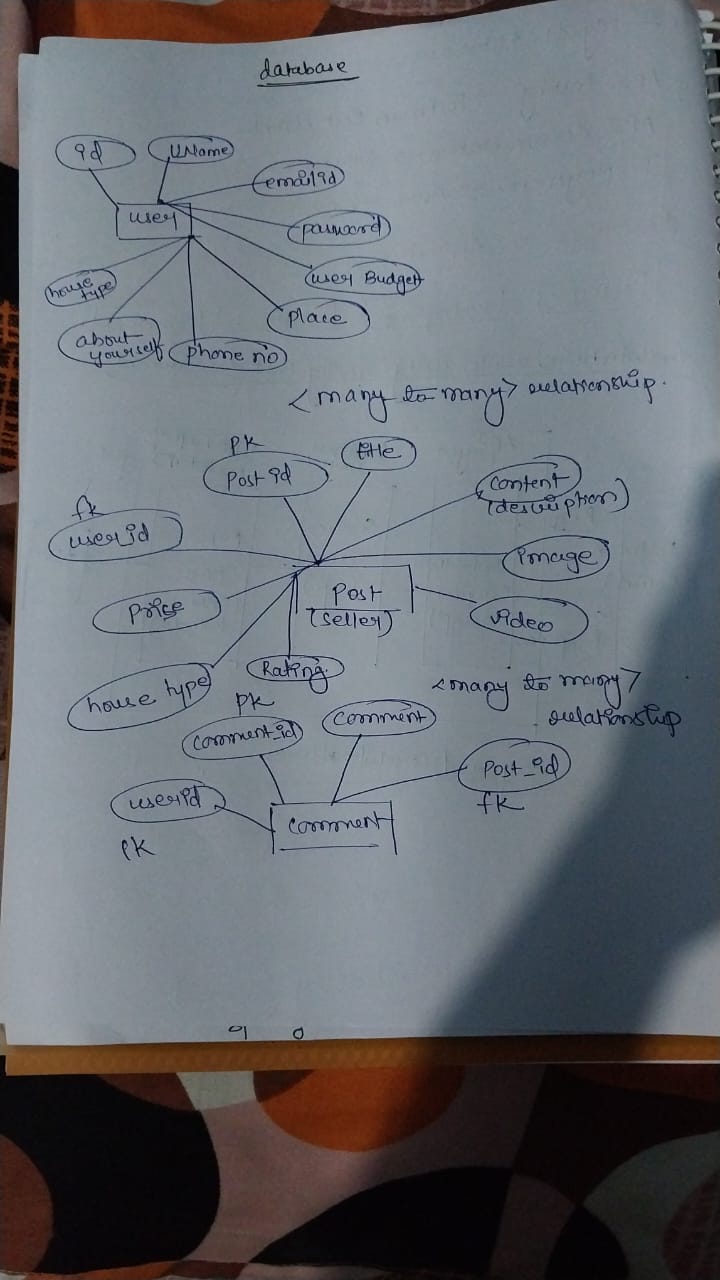 database
id
UName
emailid
password
user
user Budget
house
type
place
about
yourself
phone no
< many to many > relationship.
pk
title
Post id
content
(description)
fk
userid
image
Price
Post
(seller)
video
Rating
house type
<many to many>
relationship
pk
comment_id
comment
Post_id
fk
userid
comment
pk